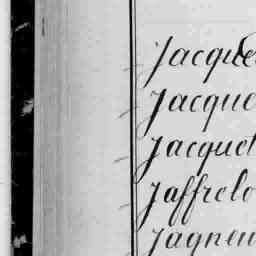 Jacque
Jacque
Jacquet
Jaffrelo
Jagneu